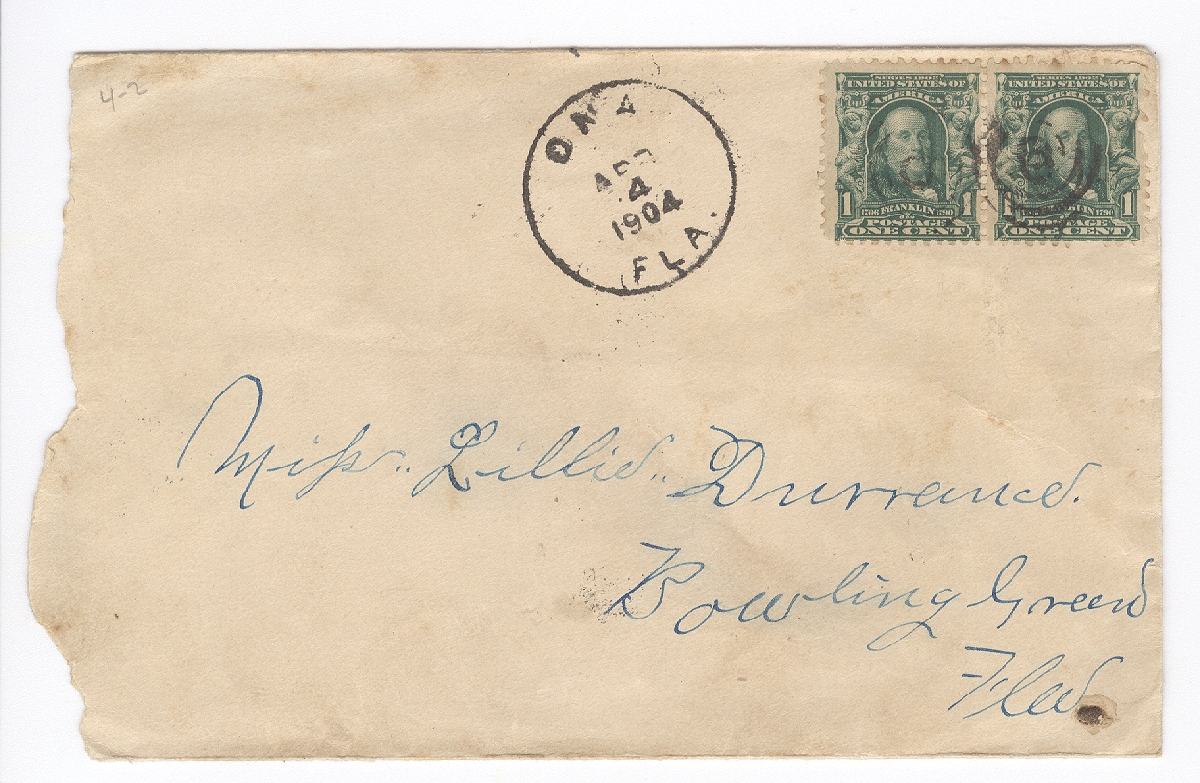 4-2
ONA
APR
4
1904
FLA.
SERIES 1902
UNITED STATES OF
AMERICA
1 1
1706 FRANKLIN 1790
POSTAGE
ONE CENT
SERIES 1902
UNITED STATES OF
AMERICA
1 1
1790
POSTAGE
ONE CENT
Miss Lillie Durrance.
Bowling Green
Fla